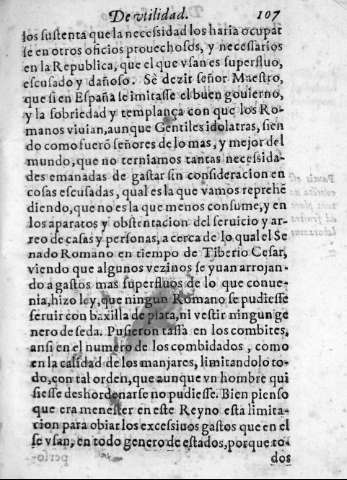 De vtilidad. 107
los sustenta que la necessidad los haria ocupar
se en otros oficios prouechosos, y necessarios
en la Republica, que el que vsan es superfluo,
escusado y dañoso. Sè dezir señor Maestro,
que si en España se imitasse el buen gouierno,
y la sobriedad y templança con que los Ro-
manos viuian, aunque Gentiles idolatras, sien
do como fuerõ señores de lo mas, y mejor del
mundo, que no terniamos tantas necessida-
des emanadas de gastar sin consideracion en
cosas escusadas, qual es la que vamos reprehẽ
diendo, que no es la que menos consume, y en
los aparatos y obstentacion del seruicio y ar-
reo de casas y personas, a cerca de lo qual el Se
nado Romano en tiempo de Tiberio Cesar,
viendo que algunos vezinos se yuan arrojan-
do a gastos mas superfluos de lo que conue-
nia, hizo ley, que ningun Romano se pudiesse
seruir con baxilla de plata, ni vestir ningun ge
nero de seda. Pusieron tassa en los combites,
ansi en el numero de los combidados, como
en la calidad de los manjares, limitandolo to-
do, con tal orden, que aunque vn hombre qui
siesse deshordenarse no pudiesse. Bien pienso
que era menester en este Reyno esta limita-
cion para obiar los excessiuos gastos que en el
se vsan, en todo genero de estados, porque to-
dos